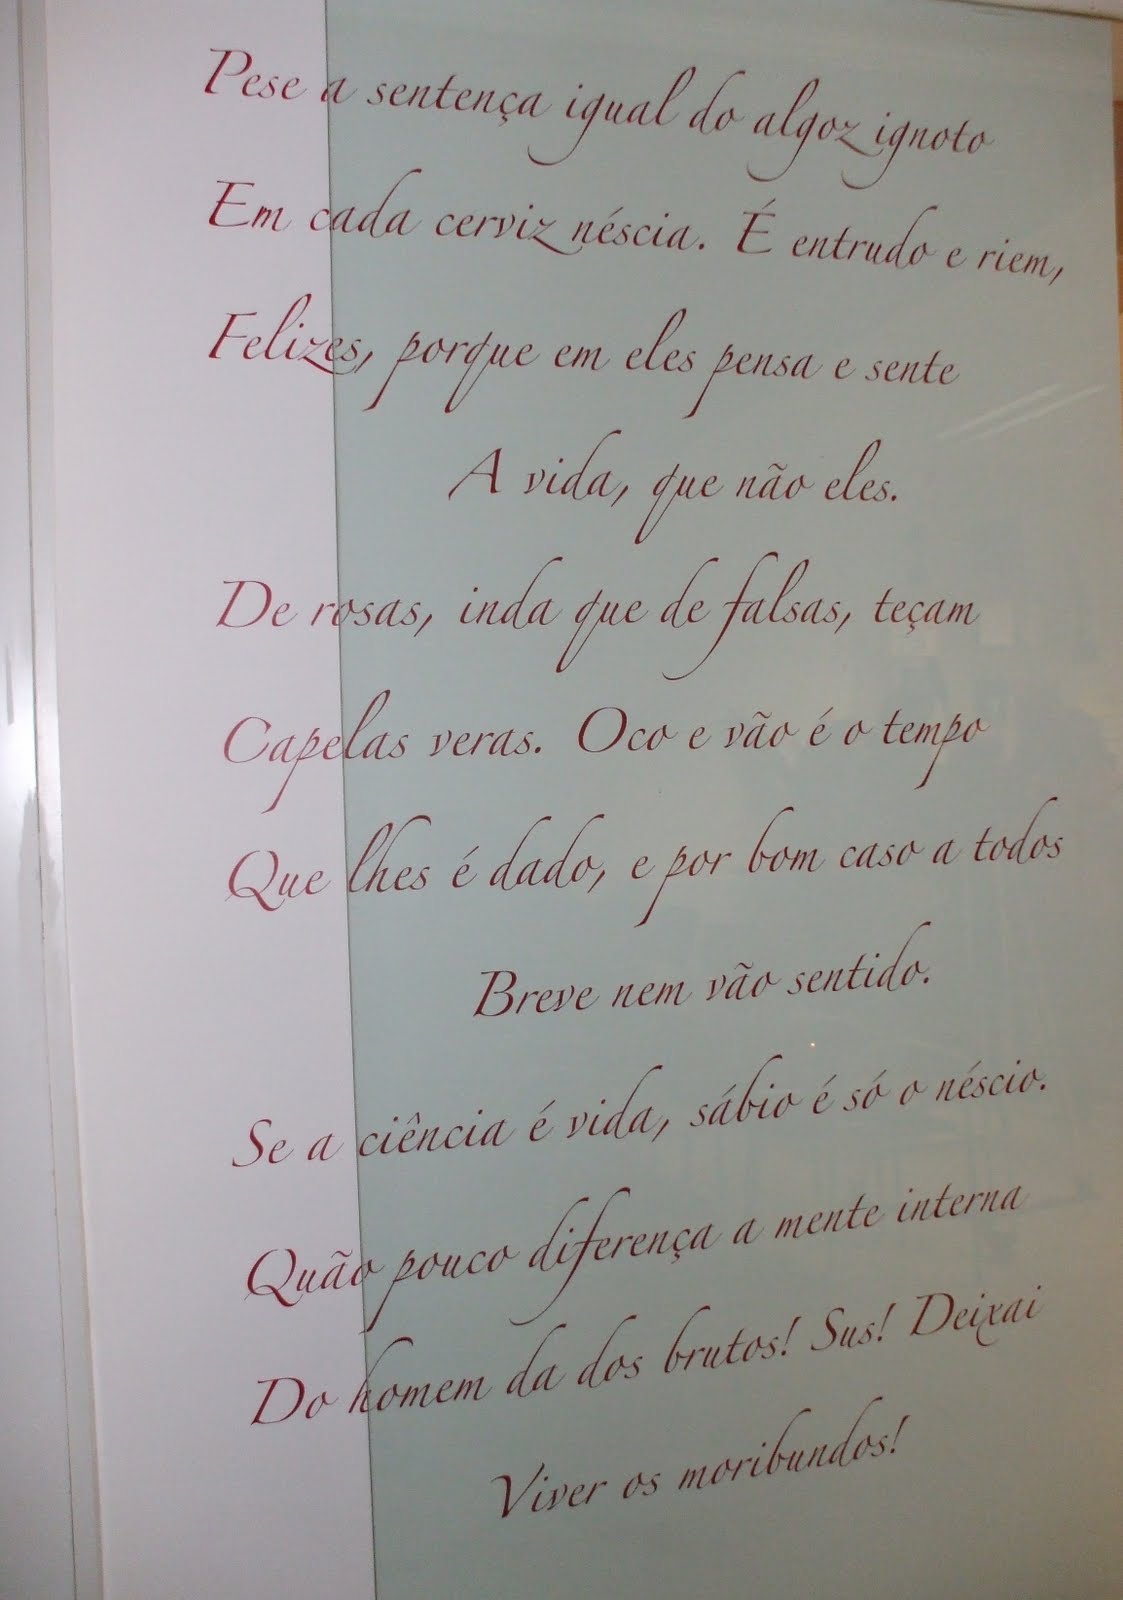 Pese a sentença igual do algoz ignoto
Em cada cerviz néscia. É entrudo e riem,
Felizes, porque em eles pensa e sente
A vida, que não eles.
De rosas, inda que de falsas, teçam
Capelas veras. Oco e vão é o tempo
Que lhes é dado, e por bom caso a todos
Breve nem vão sentido.
Se a ciência é vida, sábio é só o néscio.
Quão pouco diferença a mente interna
Do homem da dos brutos! Sus! Deixai
Viver os moribundos!